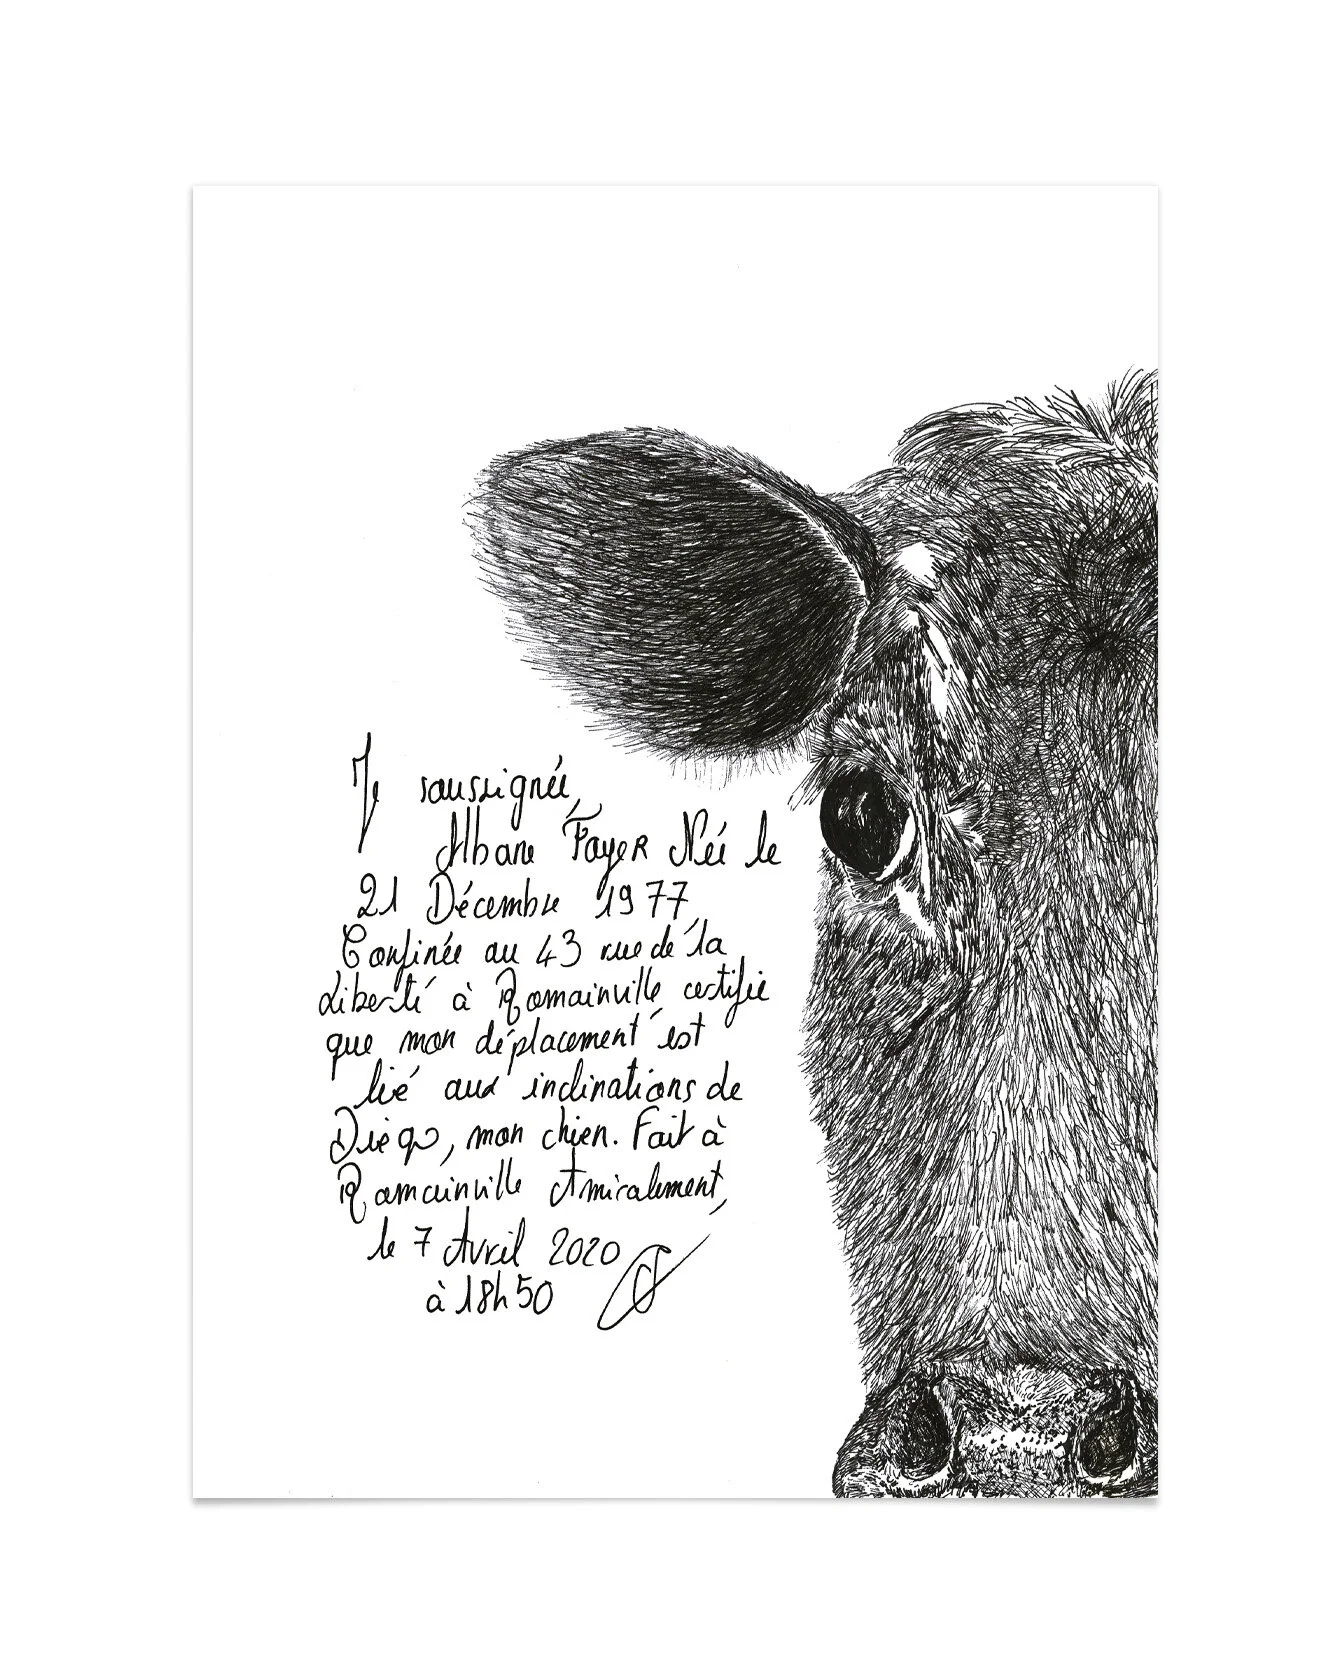 Je soussignée,
Albane Fayer Née le
21 Décembre 1977,
Confinée au 43 rue de la
Liberté à Romainville certifie
que mon déplacement est
lié aux inclinations de
Diego, mon chien. Fait à
Romainville Amiralement,
le 7 Avril 2020
à 18h50